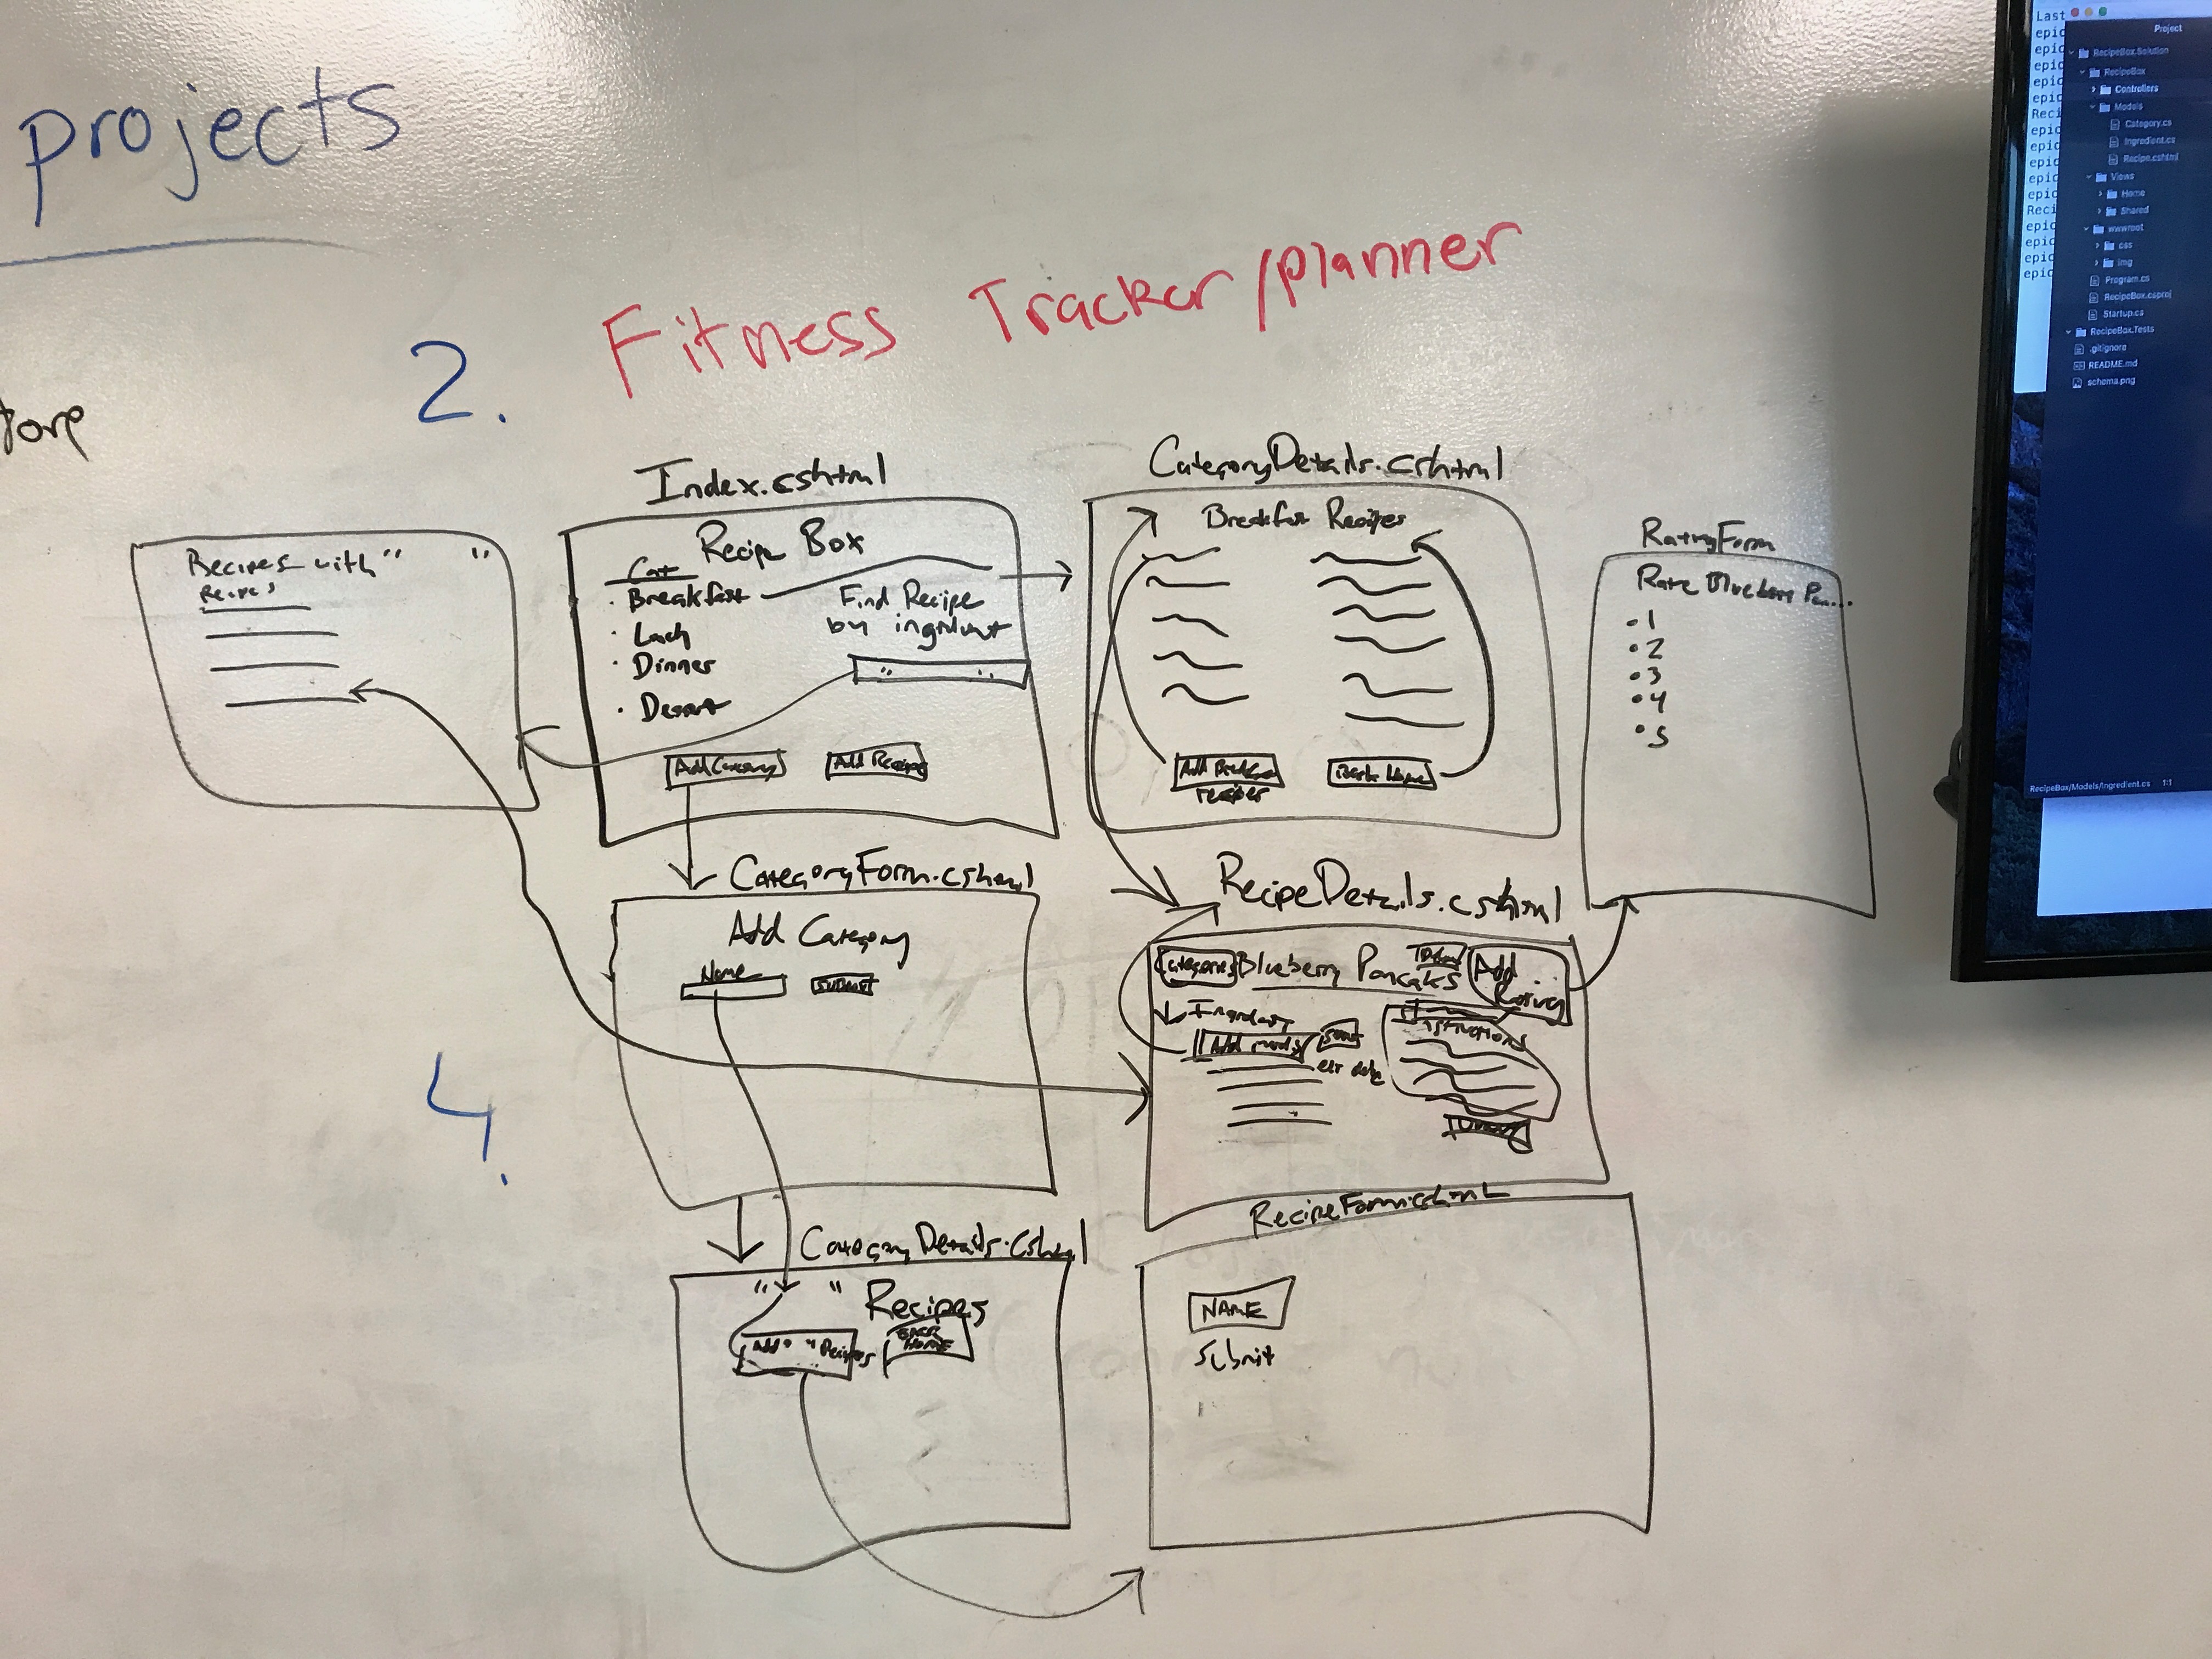 projects
2. Fitness Tracker/planner
tore
Index.cshtml
Recipe Box
Cat
Breakfast
Lunch
Dinner
Desert
Find Recipe
by ingrdient
" "
Add Category
Add Recipe
Recipes with " "
Recipes
CategoryDetails.cshtml
Breakfast Recipes
Add Breakfast
recipes
Back Home
RatingForm
Rate Blueberry Pan...
1
2
3
4
5
CategoryForm.cshtml
Add Category
Name
SUBMIT
RecipeDetails.cshtml
Categories
Blueberry Pancakes
Add
Rating
Instructions
4.
CategoryDetails.cshtml
" " Recipes
Add " " Recipes
BACK
HOME
RecipeForm.cshtml
NAME
Submit
Last
epic
Reci
Project
RecipeBox.Solution
RecipeBox
Controllers
Models
Category.cs
Ingredient.cs
Recipe.cshtml
Views
Home
Shared
wwwroot
css
img
Program.cs
RecipeBox.csproj
Startup.cs
RecipeBox.Tests
.gitignore
README.md
schema.png
RecipeBox/Models/Ingredient.cs 1:1